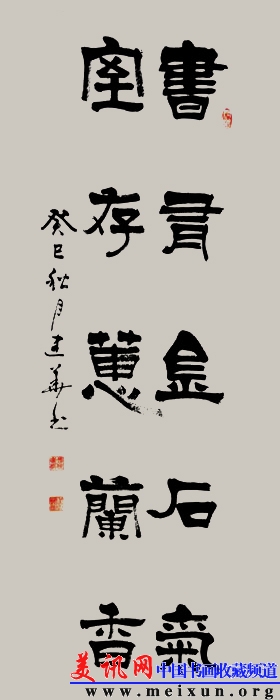 書有金石氣
室存蕙蘭香
癸巳秋月建華書
美讯网 中国书画收藏频道
www.meixun.org